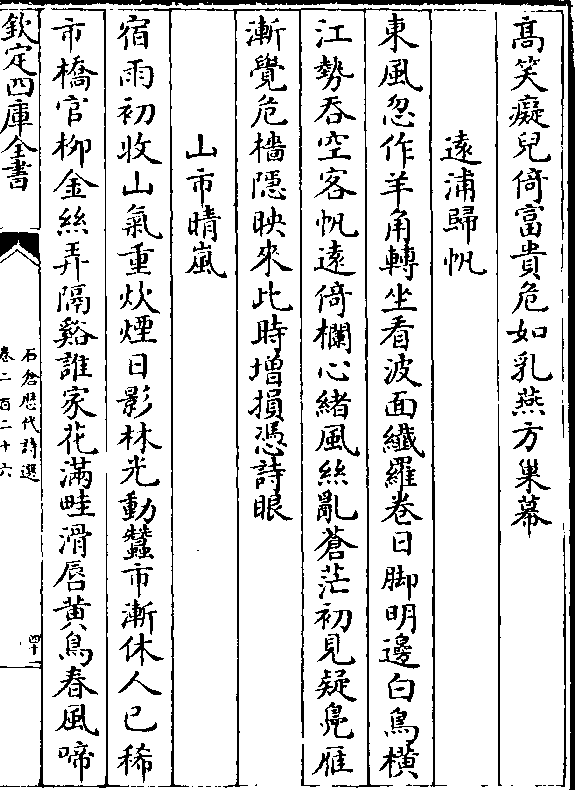 髙笑癡兒倚富貴危如乳燕方巢幕
逺浦歸帆
東風忽作羊角轉坐看波面纖羅卷日脚明邊白鳥横
江勢吞空客帆逺倚欄心緒風絲亂蒼茫初見疑鳬雁
漸覺危檣隱映來此時增損憑詩眼
山市晴嵐
宿雨初收山氣重炊煙日影林光動蠶市漸休人已稀
市橋官栁金絲弄隔谿誰家花滿畦滑唇黄鳥春風啼
欽定四庫全書
石倉歴代詩選
卷二百二十六
四十一